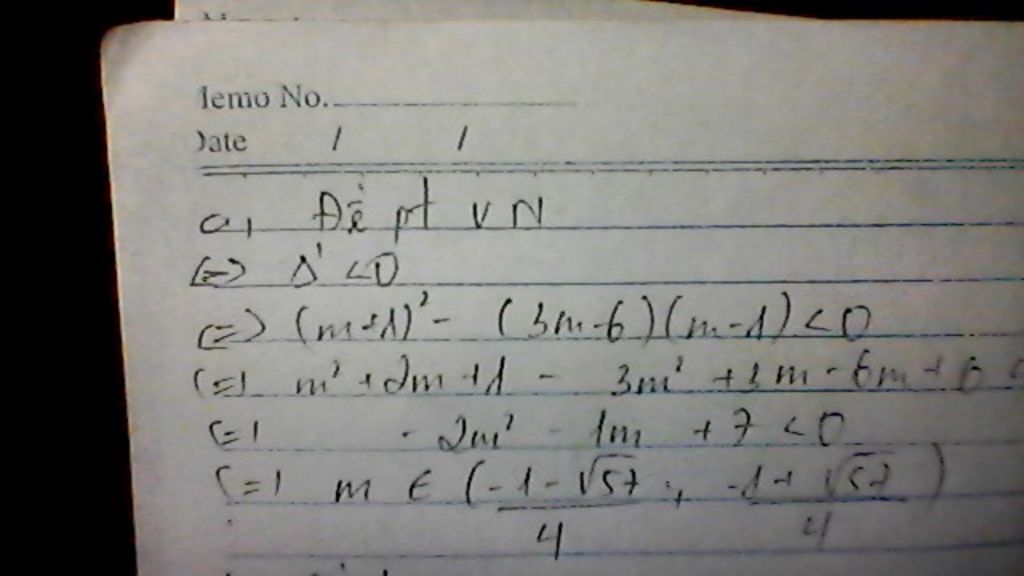 Memo No.
Date / /
a, Để pt VN
(=) Δ' <0
(=) (m+1)² - (3m-6)(m-1) <0
(=) m² + 2m + 1 - 3m² + 3m - 6m + 6 <
(=) - 2m² - 1m + 7 <0
(=) m ∈ (-1-√57 ; -1+√57)
4 4